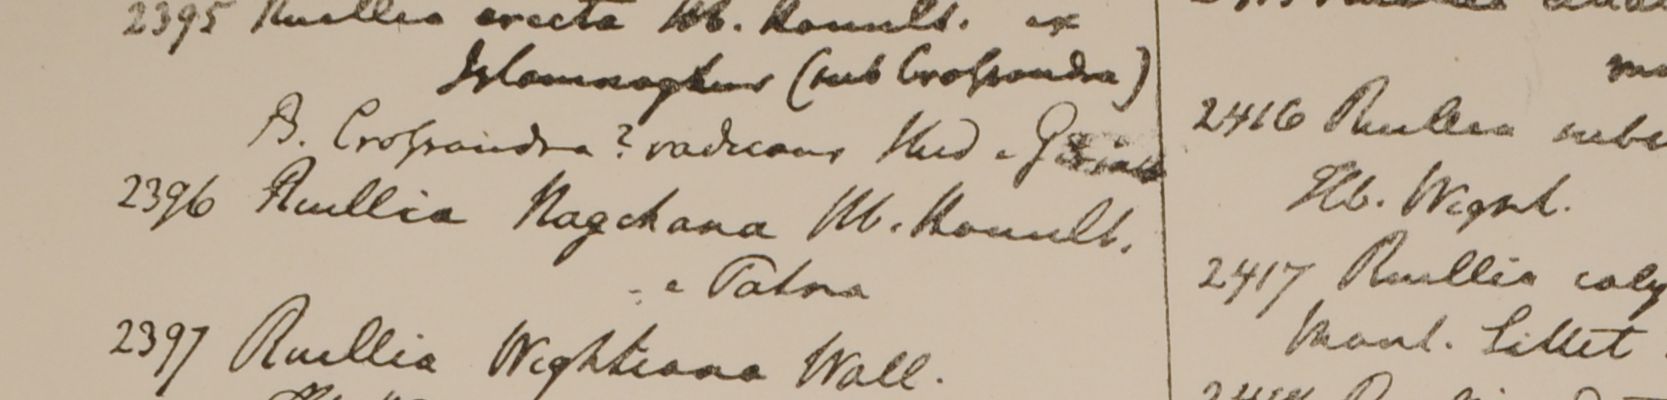 2395 Ruellia erecta Hb. Hamilt. ex
Islamnaghur (sub Crossandra)
B. Crossandra? radicans Hed e
2396 Ruellia Nagchana Hb. Hamilt.
e Patna
2397 Ruellia Wightiana Wall.
2416 Ruellia
Hb. Wight.
2417 Ruellia caly
Mont. Sillet